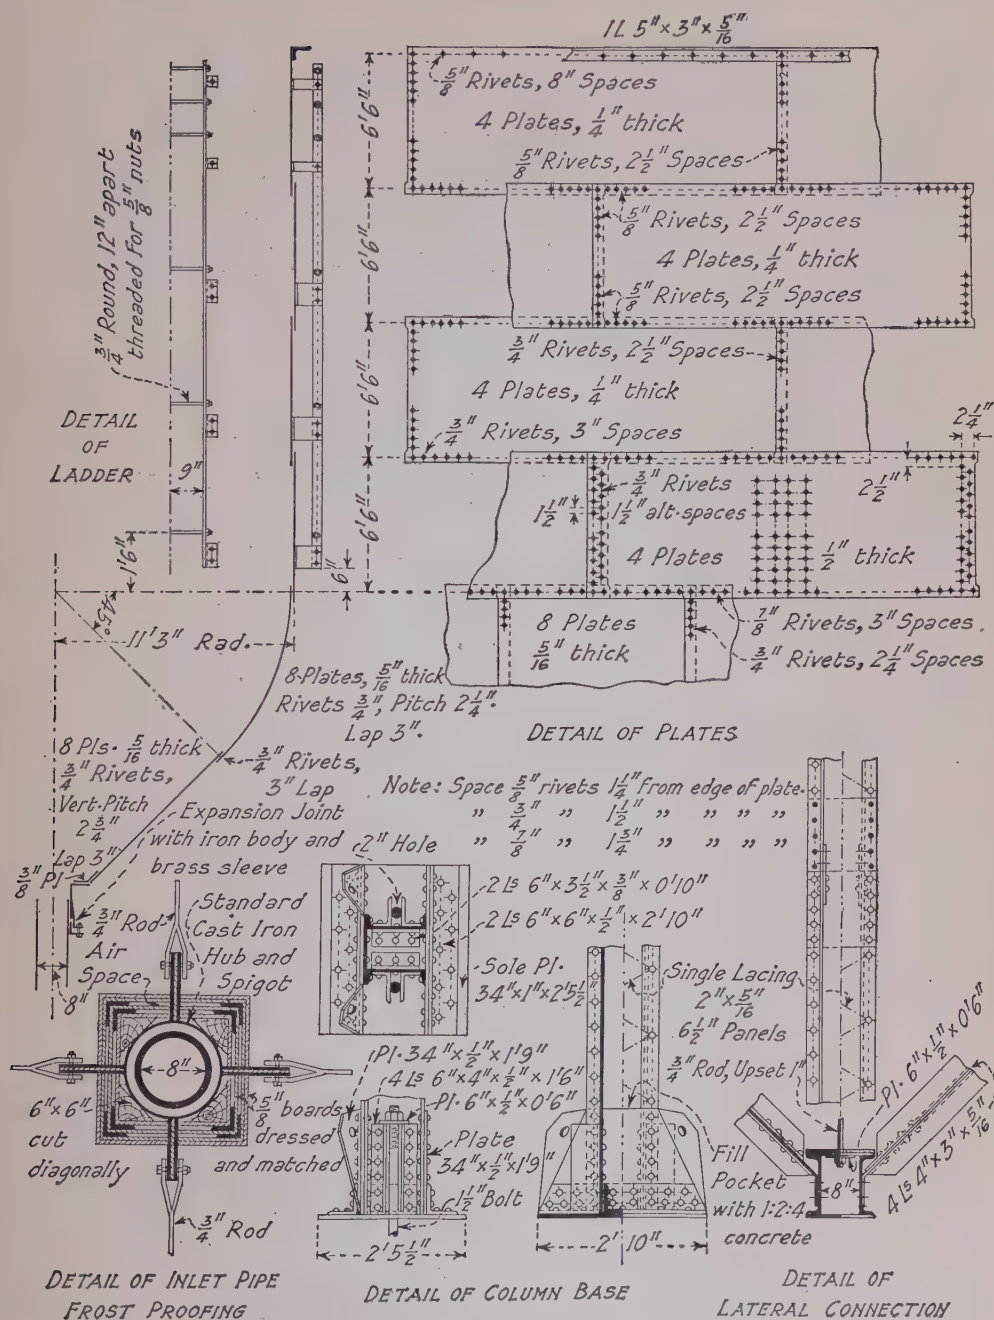 1L 5"×3"×5/16"
5/8" Rivets, 8" Spaces
4 Plates, 1/4" thick
5/8" Rivets, 2 1/2" Spaces
6'6"
5/8" Rivets, 2 1/2" Spaces
4 Plates, 1/4" thick
5/8" Rivets, 2 1/2" Spaces
6'6"
3/4" Rivets, 2 1/2" Spaces
4 Plates, 1/4" thick
3/4" Rivets, 3" Spaces
6'6"
2 1/4"
2 1/2"
3/4" Rivets
1 1/2" alt. spaces
1 1/2"
4 Plates 1/2" thick
6'6"
7/8" Rivets, 3" Spaces.
8 Plates
5/16" thick
3/4" Rivets, 2 1/4" Spaces
DETAIL OF PLATES
3/4" Round, 12" apart
threaded for 5/8" nuts
DETAIL
OF
LADDER
9"
1'6"
6"
45°
11'3" Rad.
8-Plates, 5/16" thick
Rivets 3/4", Pitch 2 1/4".
Lap 3".
8 Pls. 5/16 thick
3/4" Rivets,
Vert. Pitch
2 3/4"
3/4" Rivets,
3" Lap
Lap 3"
3/8" Pl
Expansion Joint
with iron body and
brass sleeve
Note: Space 5/8" rivets 1 1/4" from edge of plate.
" 3/4" " 1 1/2" " " " "
" 7/8" " 1 3/4" " " " "
8"
3/4" Rod
Air
Space
Standard
Cast Iron
Hub and
Spigot
8"
6"×6"
cut
diagonally
5/8" boards
dressed
and matched
3/4" Rod
DETAIL OF INLET PIPE
FROST PROOFING
2" Hole
2 Ls 6"×3 1/2"×3/8"×0'10"
2 Ls 6"×6"×1/2"×2'10"
Sole Pl.
34"×1"×2'5 1/2"
Pl. 34"×1/2"×1'9"
4 Ls 6"×4"×1/2"×1'6"
Pl. 6"×1/2"×0'6"
Plate
34"×1/2"×1'9"
1 1/2" Bolt
2'5 1/2"
Single Lacing
2"×5/16"
6 1/2" Panels
3/4" Rod, Upset 1"
Fill
Pocket
with 1:2:4
concrete
2'10"
DETAIL OF COLUMN BASE
Pl. 6"×1/2"×0'6"
8"
4 Ls 4"×3"×5/16"
DETAIL OF
LATERAL CONNECTION